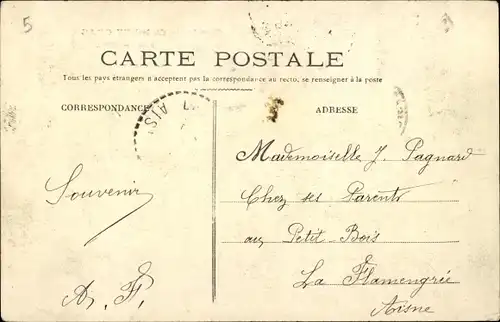 5
CARTE POSTALE
Tous les pays étrangers n'acceptent pas la correspondance au recto, se renseigner à la poste
CORRESPONDANCE
AISN
ADRESSE
Mademoiselle J. Pagnard
Souvenir
Chez ses Parents
au Petit-Bois
A. F.
La Flamengrie
Aisne